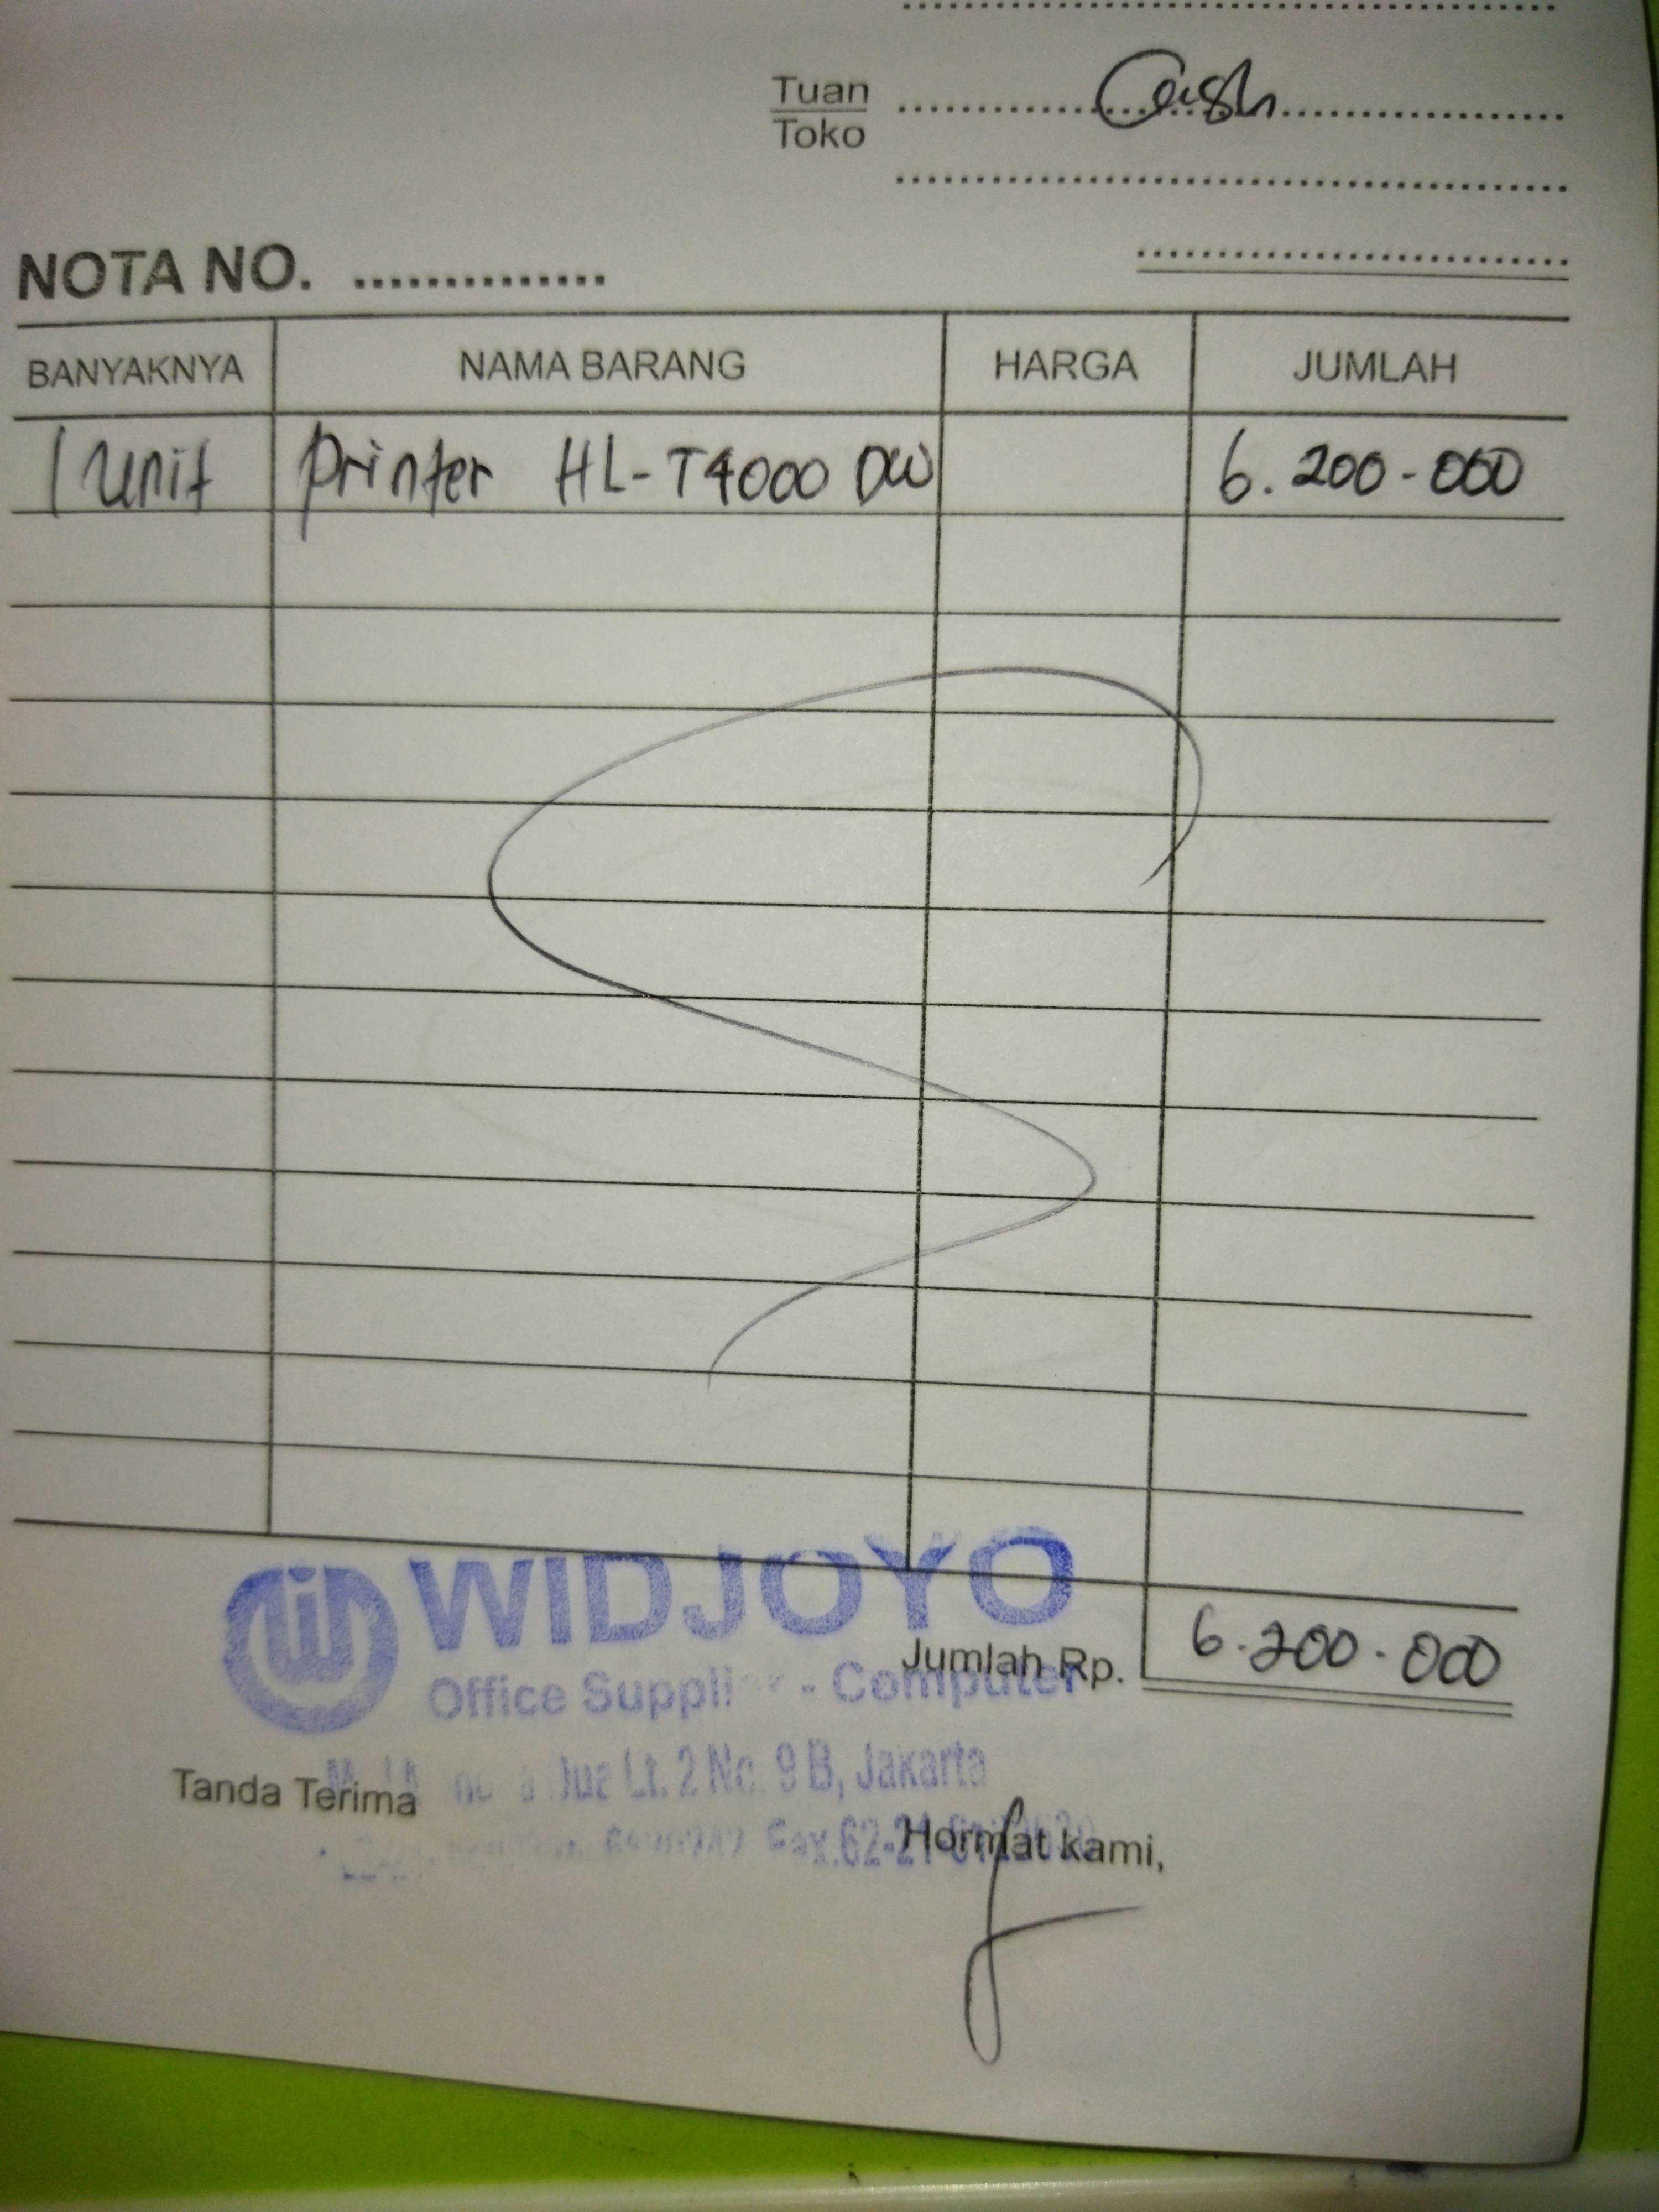 Tuan
Toko
Cash
NOTA NO. ..............
BANYAKNYA NAMA BARANG HARGA JUMLAH
1 Unit Printer HL-T4000 DW 6.200-000
WIDJOYO
Jumlah Rp. 6.200.000
Office - Computer
Dua Lt. 2 No. 9 B, Jakarta
Tanda Terima
Fax.62-21
Hormat kami,